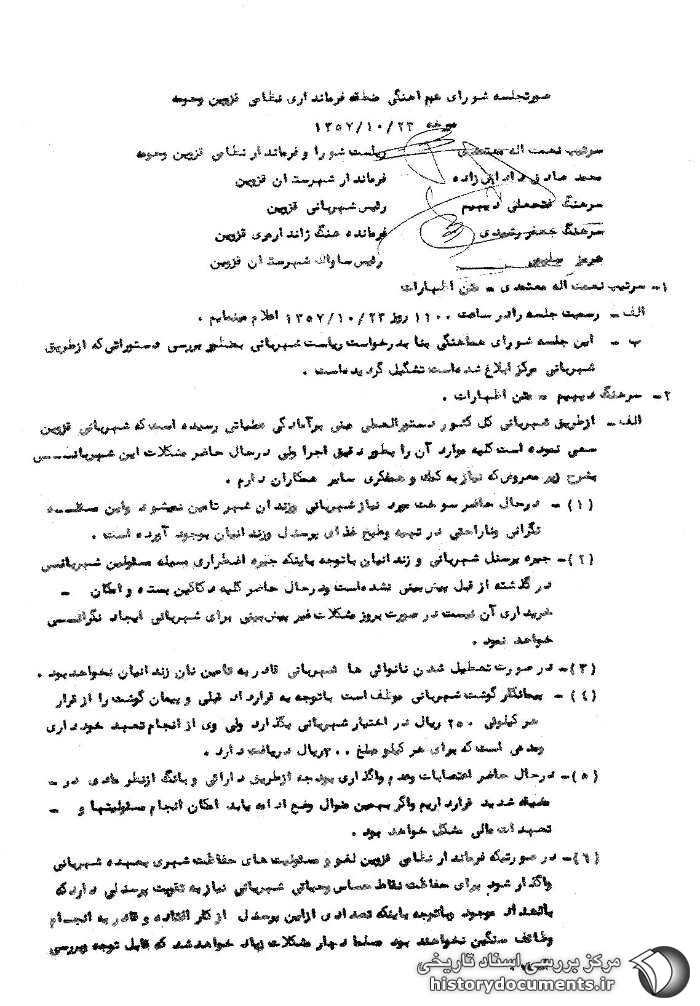 صورتجلسه شورای هم آهنگی منطقه فرمانداری نظامی قزوین وحومه
مورخه ۱۳۵۷/۱۰/۲۳
سرتیپ نعمت اله معتمدی ریاست شورا و فرماندار نظامی قزوین وحومه
محمد صادق زاده فرماندار شهرستان قزوین
سرهنگ فتحعلی دیهیم رئیس شهربانی قزوین
سرهنگ جعفر رشیدی فرمانده هنگ ژاندارمری قزوین
هرمز رئیس ساواک شهرستان قزوین
۱- سرتیپ نعمت اله معتمدی - متن اظهارات
الف - رسمیت جلسه را در ساعت ۱۱۰۰ روز ۱۳۵۷/۱۰/۲۳ اعلام مینمایم .
ب - این جلسه شورای هماهنگی بنا بدرخواست ریاست شهربانی بمنظور بررسی دستوراتی که ازطریق
شهربانی مرکز ابلاغ شده است تشکیل گردیده است .
۲- سرهنگ دیهیم - متن اظهارات .
الف - ازطریق شهربانی کل کشور دستورالعملی مبنی برآمادگی عملیاتی رسیده است که شهربانی قزوین
سعی نموده است کلیه موارد آن را بطور دقیق اجرا ولی درحال حاضر مشکلات این شهربانی
بشرح زیر معروض که نیاز به کمک و همفکری سایر همکاران دارم .
(۱) - درحال حاضر سوخت مورد نیاز شهربانی وزندان شهر تامین نمیشود واین مسئله
نگرانی وناراحتی در تهیه وطبخ غذای پرسنل وزندانیان بوجود آورده است .
(۲) - جیره پرسنل شهربانی و زندانیان باتوجه باینکه جیره اضطراری بوسیله مسئولین شهربانی
در گذشته از قبل پیش بینی نشده است ودرحال حاضر کلیه دکاکین بسته و امکان -
خریداری آن نیست در صورت بروز مشکلات غیر پیش بینی برای شهربانی ایجاد نگرانی
خواهد نمود .
(۳) - در صورت تعطیل شدن نانوائی ها شهربانی قادر به تامین نان زندانیان نخواهد بود .
(۴) - پیمانکار گوشت شهربانی موظف است باتوجه به قرارداد قبلی و پیمان گوشت را از قرار
هر کیلوئی ۲۵۰ ریال در اختیار شهربانی بگذارد ولی وی از انجام تعهد خودداری
ومدعی است که برای هر کیلو مبلغ ۳۰۰ ریال دریافت دارد .
(۵) - درحال حاضر اعتصابات وعدم واگذاری بودجه ازطریق دارائی و بانک ازنظر مادی در -
مضیقه شدید قرارداریم واگر بهمین منوال وضع ادامه یابد امکان انجام مسئولیتها و -
تعهدات مالی مشکل خواهد بود .
(۶) - در صورتیکه فرماندار نظامی قزوین لغو و مسئولیت های حفاظت شهری بعهده شهربانی
واگذار شود برای حفاظت نقاط حساس وحیاتی شهربانی نیاز به تقویت پرسنلی دارد که
باتعداد موجود وباتوجه باینکه تعدادی ازاین پرسنل از کار افتاده و قادر به انجام
وظائف سنگین نخواهند بود مسلما دچار مشکلات زیاد خواهد شد که قابل توجه وبررسی
مرکز بررسی اسناد تاریخی
historydocuments.ir